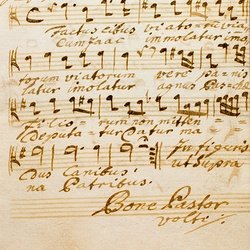 factus cibus viatorum
Cum Isaac immolatur
forum viatorum vere panis
latur imolatur agnus Pascha
filiorum non mitten
Deputatur Datur ma
Dus Canibus. In figuris
na Patribus. ut supra
Bone Pastor
volti